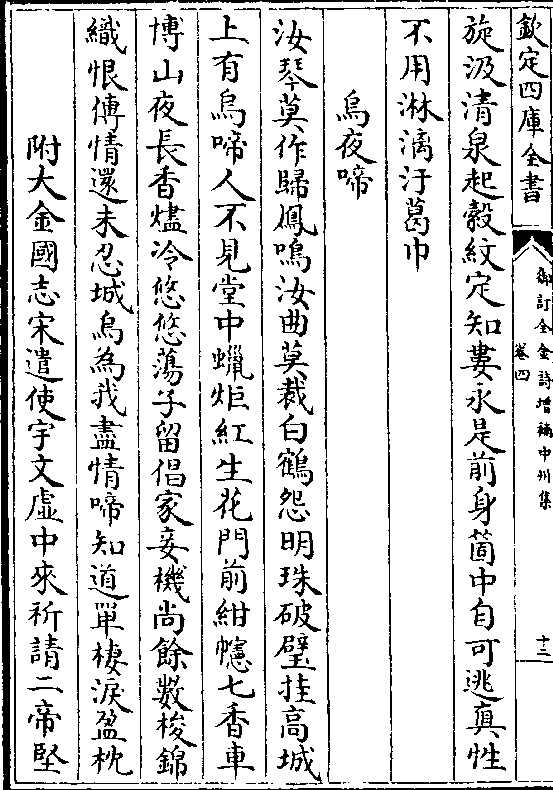 欽定四庫全書
御訂全金詩增補中州集
卷四
十三
旋汲清泉起縠紋定知婁永是前身箇中自可逃真性
不用淋漓汙葛巾
烏夜啼
汝琴莫作歸鳳鳴汝曲莫裁白鶴怨明珠破璧挂高城
上有烏啼人不見堂中蠟炬紅生花門前紺幰七香車
博山夜長香燼冷悠悠蕩子留倡家妾機尚餘數梭錦
織恨傳情還未忍城烏為我盡情啼知道單棲淚盈枕
附大金國志宋遣使宇文虛中來祈請二帝堅